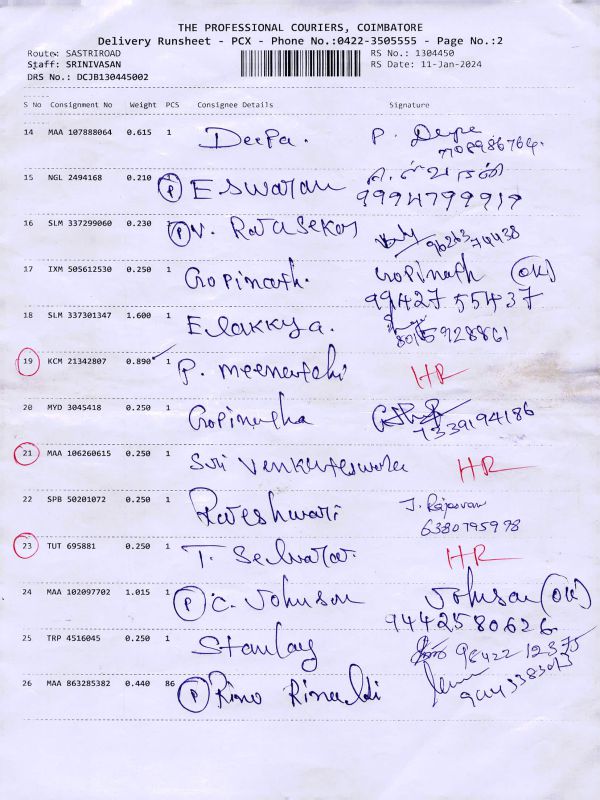 THE PROFESSIONAL COURIERS, COIMBATORE
Delivery Runsheet - PCX - Phone No.:0422-3505555 - Page No.:2
Route: SASTRIROAD RS No.: 1304450
Staff: SRINIVASAN RS Date: 11-Jan-2024
DRS No.: DCJB130445002
S No Consignment No Weight PCS Consignee Details Signature
14 MAA 107888064 0.615 1 Deepa. P. Deepa
7708986764.
15 NGL 2494168 0.210 1 (P) Eswaran
9994799919
16 SLM 337299060 0.230 1 (P) V. Rajasekar
96263 74438
17 IXM 505612530 0.250 1 Gopinath. Gopinath (OK)
99427 55437
18 SLM 337301347 1.600 1 Elakkya.
8015928861
19 KCM 21342807 0.890 1 P. meenatchi HR
20 MYD 3045418 0.250 1 Gopinatha
7339194186
21 MAA 106260615 0.250 1 Sri Venkateswara HR
22 SPB 50201072 0.250 1 Rajeshwari J. Rajeswari
6380795978
23 TUT 695881 0.250 1 T. Selvaraj HR
24 MAA 102097702 1.015 1 (P) C. Johnson Johnson (OK)
9442580626
25 TRP 4516045 0.250 1 Stanlay 98422 12375
26 MAA 863285382 0.440 86 (P) Rino Rinaldi